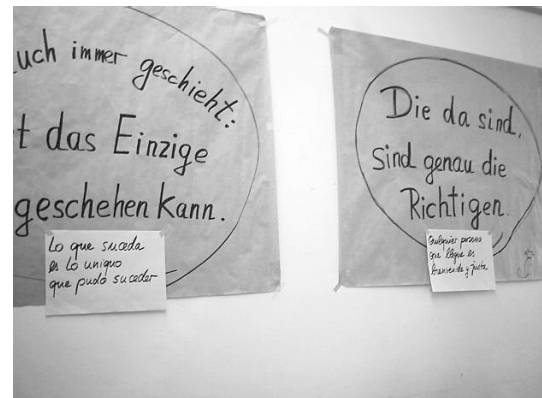 uch immer geschieht:
t das Einzige
geschehen kann.
Lo que suceda
es lo unique
que pudo suceder
Die da sind,
sind genau die
Richtigen.
Cualquier persona
que llegue es
bienvenida y justa